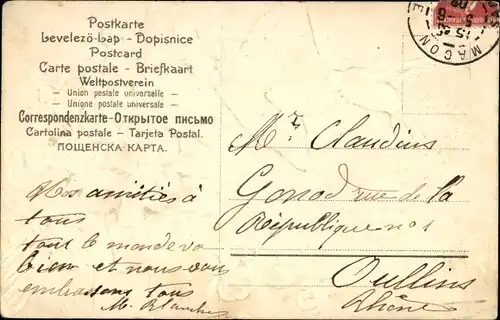 Postkarte
Levelező-Lap - Dopisnice
Postcard
Carte postale - Briefkaart
Weltpostverein
- Union postale universelle -
- Unione postale universale -
Correspondenzkarte - Открытое письмо
Cartolina postale - Tarjeta Postal.
ПОЩЕНСКА КАРТА.
MACON
Mr Claudius
Gonod rue de la
République no 1
Oullins
Rhône
Mes amitiés à
tous
tout le monde va
bien et nous vous
embrassons tous
M. Blanche